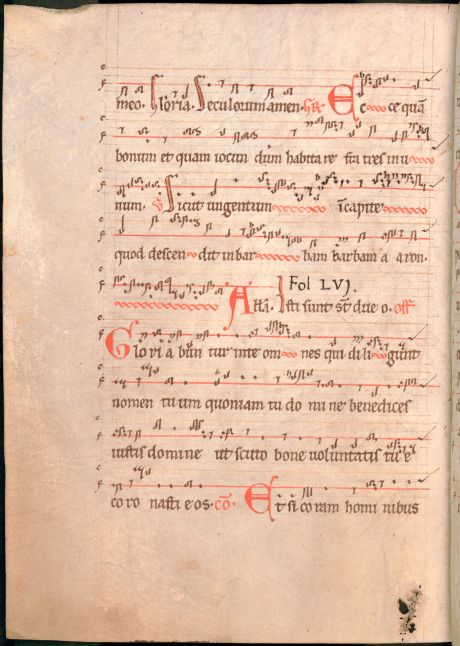 meo. Gloria. Seculorum amen. Gr. Ec ce quā
bonum et quam iocun dum habita re fra tres in u
num. V. Sicut ungentum ī capite
quod descen dit in bar bam barbam a aron.
Alła. Isti sunt. Fol LVJ. due o. off.
Glo ri a bun tur in te om nes qui dili gunt
nomen tu um quoniam tu do mi ne benedices
iustis domine ut scuto bone uoluntatis tu e
co ro nasti e os. cō. Et si co ram homi nibus